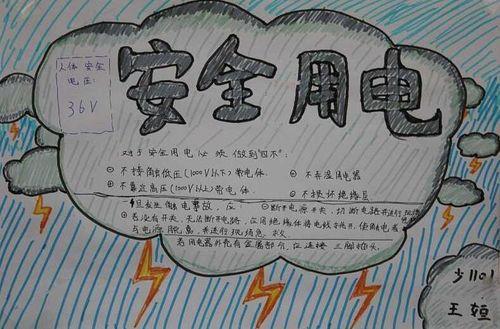 安全用电
人体安全
电压:
36V
对于安全用电必须做到"四不":
①不接触低压(1000V以下)带电体.
②不靠近高压(1000V以上)带电体.
③不弄湿用电器
④不损坏绝缘层
一旦发生触电事故,应①断开电源开关,切断电路并进行现场
②若没有开关,无法断开电路,应用绝缘体将电线挑开,使触电者
与电源脱离,并进行现场急救.
若用电器外壳有金属部分,应连接三脚插头.
少1101
王姮